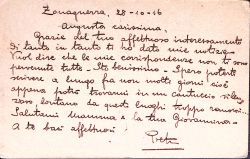 Zonaguerra, 28-10-16
Augusta carissima,
Grazie del tuo affettuoso interessamento
Di tanto in tanto ti ho dato mie notizie
Vuol dire che le mie corrispondenze non ti sono
pervenute tutte. Sto benissimo. Spero poterti
scrivere a lungo fra non molti giorni cioè
appena potrò trovarmi in un cantuccio
lontano da questi luoghi troppo
Salutami mamma e la tua Giovannina.
A te baci affettuosi